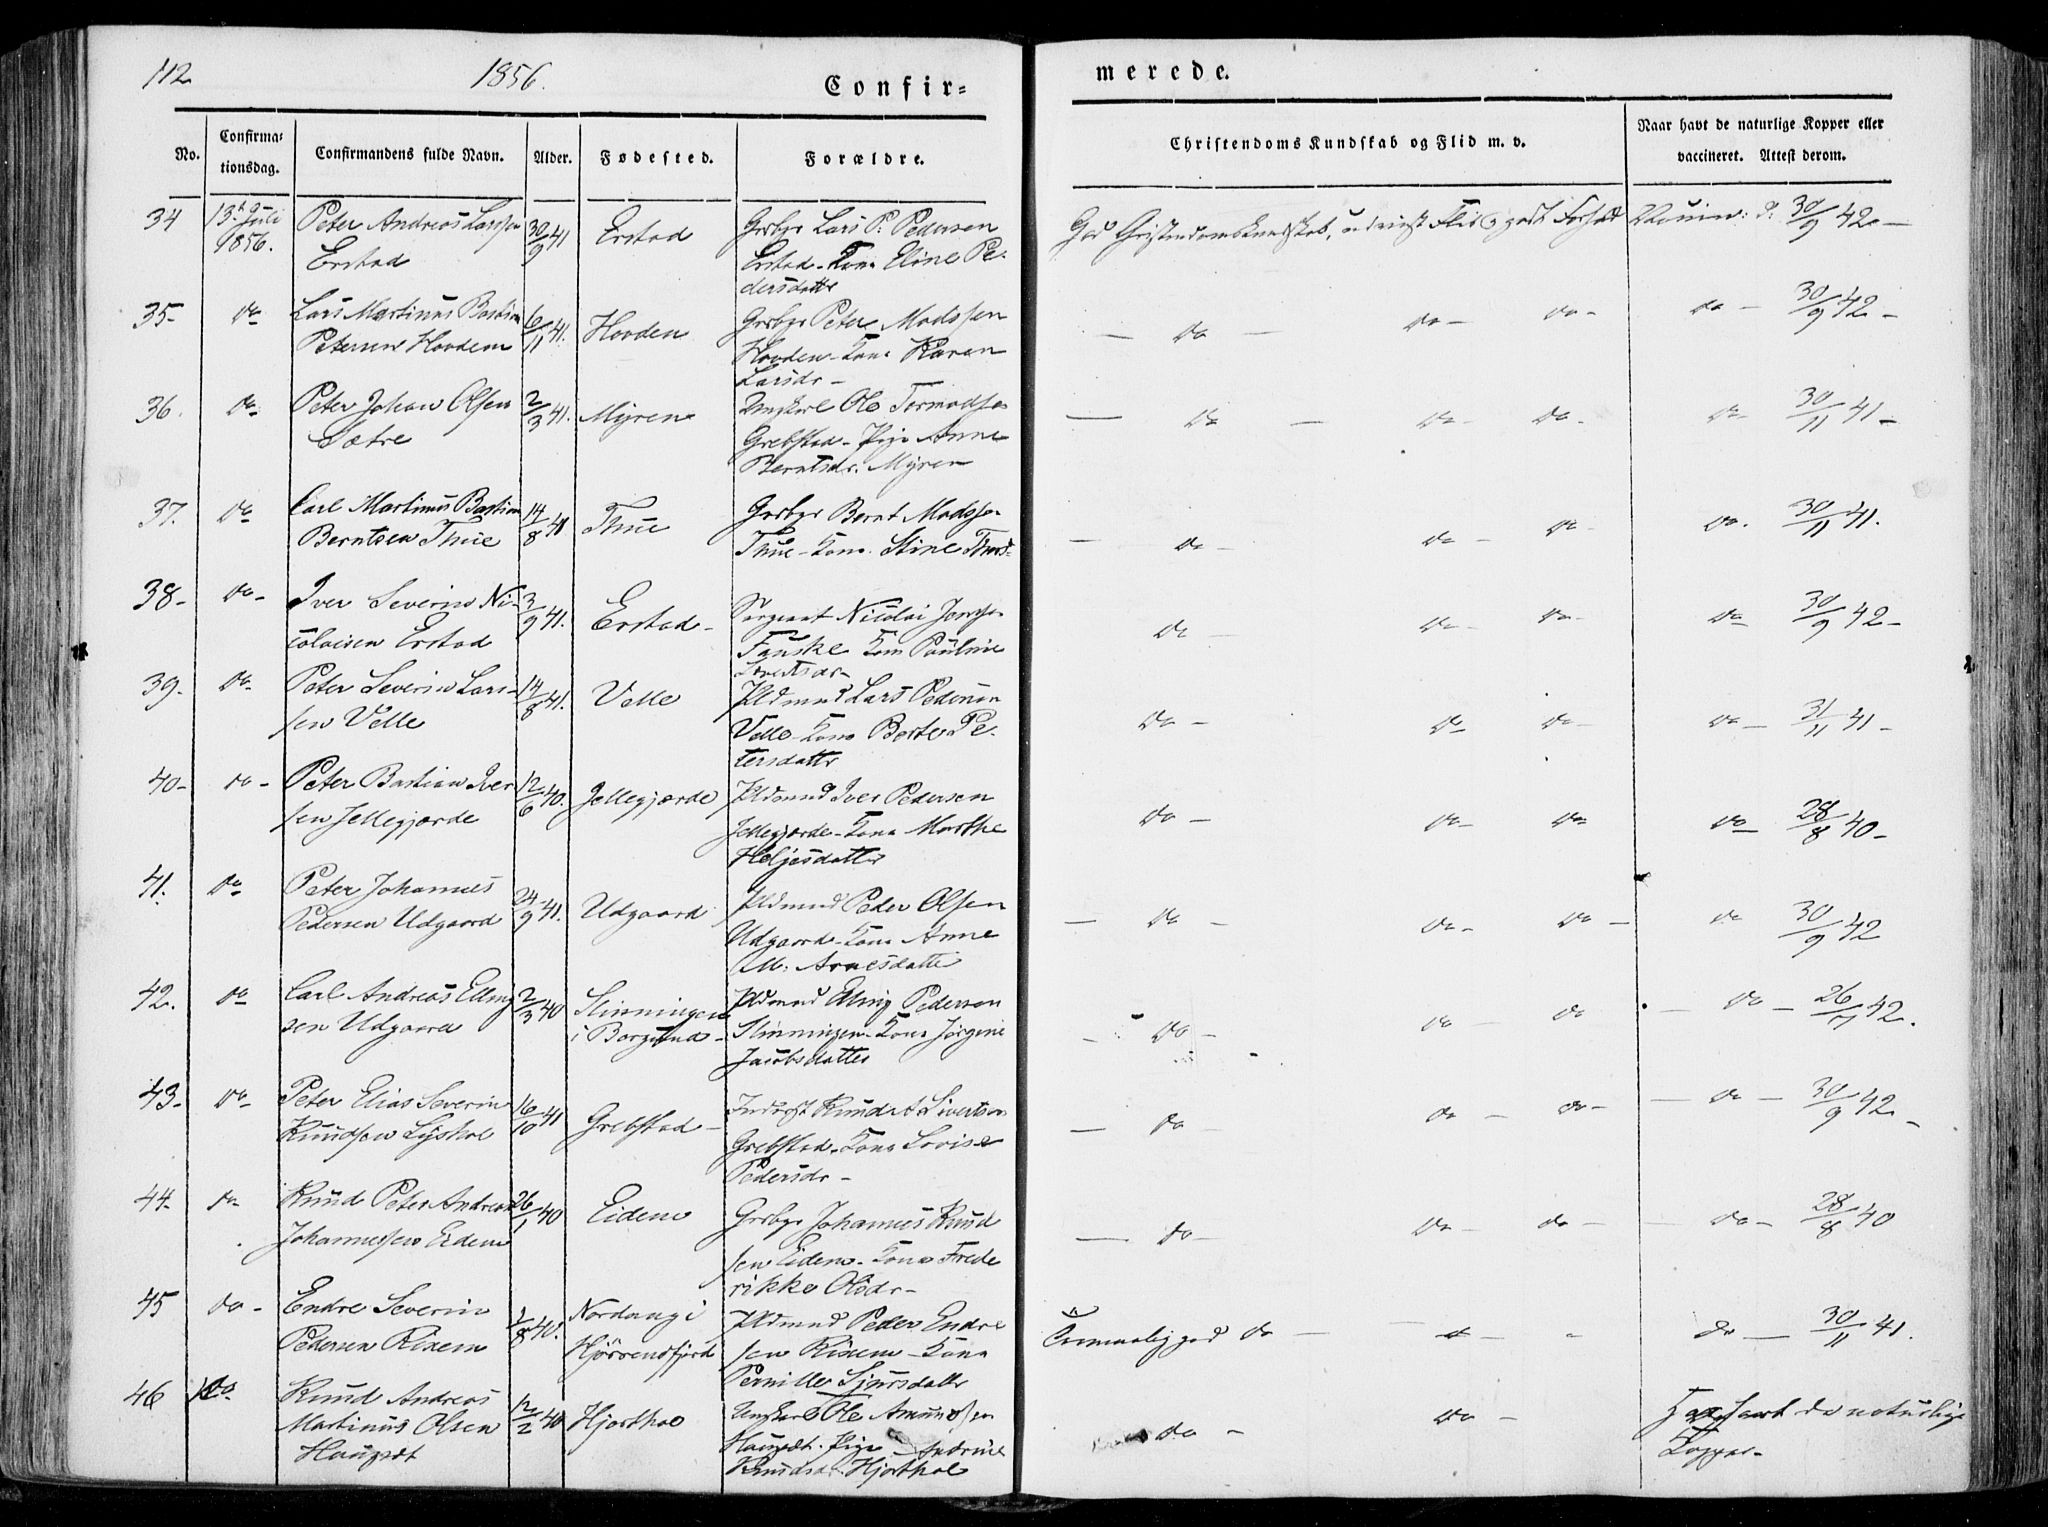 112
1856.
Confir=
merede.
No.
Confirma=
tionsdag.
Confirmandens fulde Navn.
Alder.
Fødested.
Forældre.
Christendoms Kundskab og Flid m. v.
Naar havt de naturlige Kopper eller
vaccineret. Attest derom.
34
13de Juli
1856.
Peter Andreas Larssen
Erstad
30/9 41
Erstad
Grbgr Lars P. Pedersen
Erstad - Kone Eline Pe-
dersdatte
God Christendomskundskab, udmerkt Flid og godt Forhold
Vaccin: d: 30/9 42 -
35-
do
Lars Martinus Bastian
Petersen Hovden
6/11 41.
Hovden
Grbgr Peter Madssen
Hovden - Kone Karen
Larsdr -
- do -
do -
do -
do - 30/9 42 -
36.
do
Peter Johan Olsen
Sætre
2/3 41.
Myren
Ungkarl Ole Tormodsen
Grebstad - Pige Anne
Berntsdr. Myren
- do -
do -
do -
do - 30/11 41 -
37.
do
Carl Martinus Bastian
Berntsen Thue
14/8 41
Thue
Grbgr Bernt Madssen
Thue - Kone Stine
- do -
do -
do -
do. 30/11 41.
38-
do -
Iver Severin Ni-
colaisen Erstad
3/9 41.
Erstad -
Sergeant Nicolai
Fauske Kone Pauline
do -
do -
do -
do 30/9 42 -
39-
do -
Peter Severin Lars-
sen Velle
14/8 41.
Velle
Pldmand Lars Pedersen
Velle - Kone Berte Pe-
tersdatte
do -
do
do -
do - 31/11 41 -
40-
do -
Peter Bastian Iver
sen Jellegjærde
12/6 40.
Jellegjærde
Pldmand Iver Pedersen
Jellegjærde - Kone Marthe
Heljesdatter
do -
do -
do
do - 28/8 40 -
41.
do
Peter Johannes
Pedersen Udgaard
24/9 41.
Udgaard
Pldmand Peder Olsen
Udgaard - Kone Anne
M: Arnesdatte
- do -
do -
do -
do 30/9 42
42.
do
Carl Andreas Elling
sen Udgaard
2/3 40
Slinningen
i Borgund -
Pldmand Elling Pedersen
Slinningen - Kone Jørgine
Jacobsdatter
- do -
do -
do
- do - 26/11 42.
43-
do -
Peter Elias Severin
Knudsen Lyshol
16/10 41
Grebstad -
Inderst Knud A Sivertsen
Grebstad - Kone Lovise
Pedersdr -
- do -
do -
do -
- do - 30/9 42 -
44-
do -
Knud Peter Andreas
Johannessen Eidem
26/1 40
Eidem
Grbgr Johannes Knud
sen Eidem - Kone Frede
rikke Olsdr -
- do -
do -
do -
- do - 28/8 40
45
do -
Endre Severin
Pedersen Rixem
1/8 40.
Nordang i
Hjørrendfjord
Pldmand Peder Endre
sen Rixem - Kone
Pernille Sjursdatte
Temmelig god do -
do -
do - 30/11 41.
46
do
Knud Andreas
Martinus Olsen
Haugedt
12/2 40
Hjorthol
Ungkarl Ole Amundsen
Haugedt. Pige Andrine
Knudsdr. Hjorthol
do -
do -
Har havt de naturlige
Kopper -